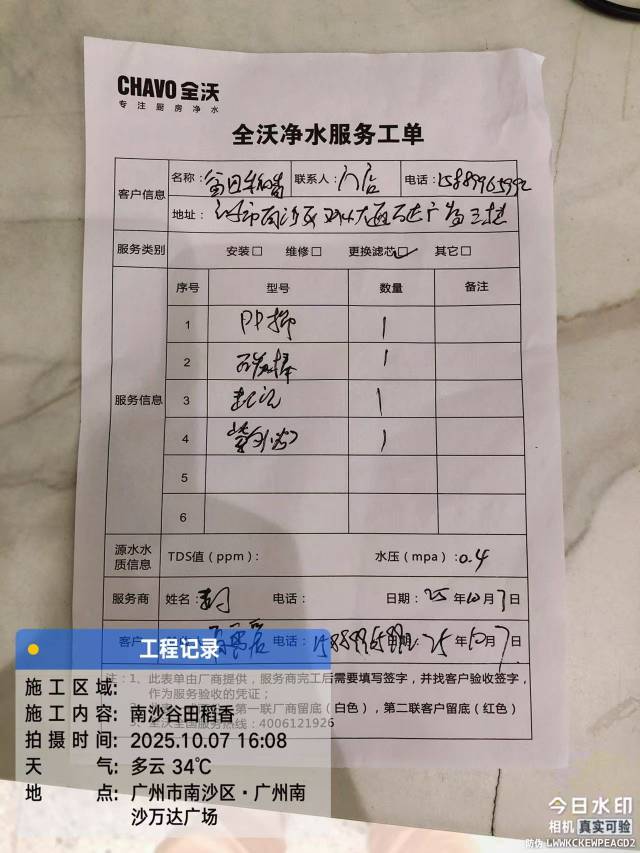 CHAVO 全沃
专注厨房净水
全沃净水服务工单
客户信息
名称：谷田稻香 联系人：门店 电话：
地址：
服务类别 安装□ 维修□ 更换滤芯☑ 其它□
服务信息
序号 型号 数量 备注
1 PP棉 1
2 碳棒 1
3 1
4 紫外灯 1
5
6
源水水质信息 TDS值（ppm）： 水压（mpa）：0.4
服务商 姓名： 电话： 日期：25年10月7日
客户 电话： 25年10月7日
注：1、此表单由厂商提供，服务商完工后需要填写签字，并找客户验收签字，
作为服务验收的凭证；
第一联厂商留底（白色），第二联客户留底（红色）
全沃全国服务热线：4006121926
工程记录
施工区域：
施工内容：南沙谷田稻香
拍摄时间：2025.10.07 16:08
天气：多云 34℃
地点：广州市南沙区·广州南
沙万达广场
今日水印
相机 真实可验
防伪 LWWKCKEWPEAGD2